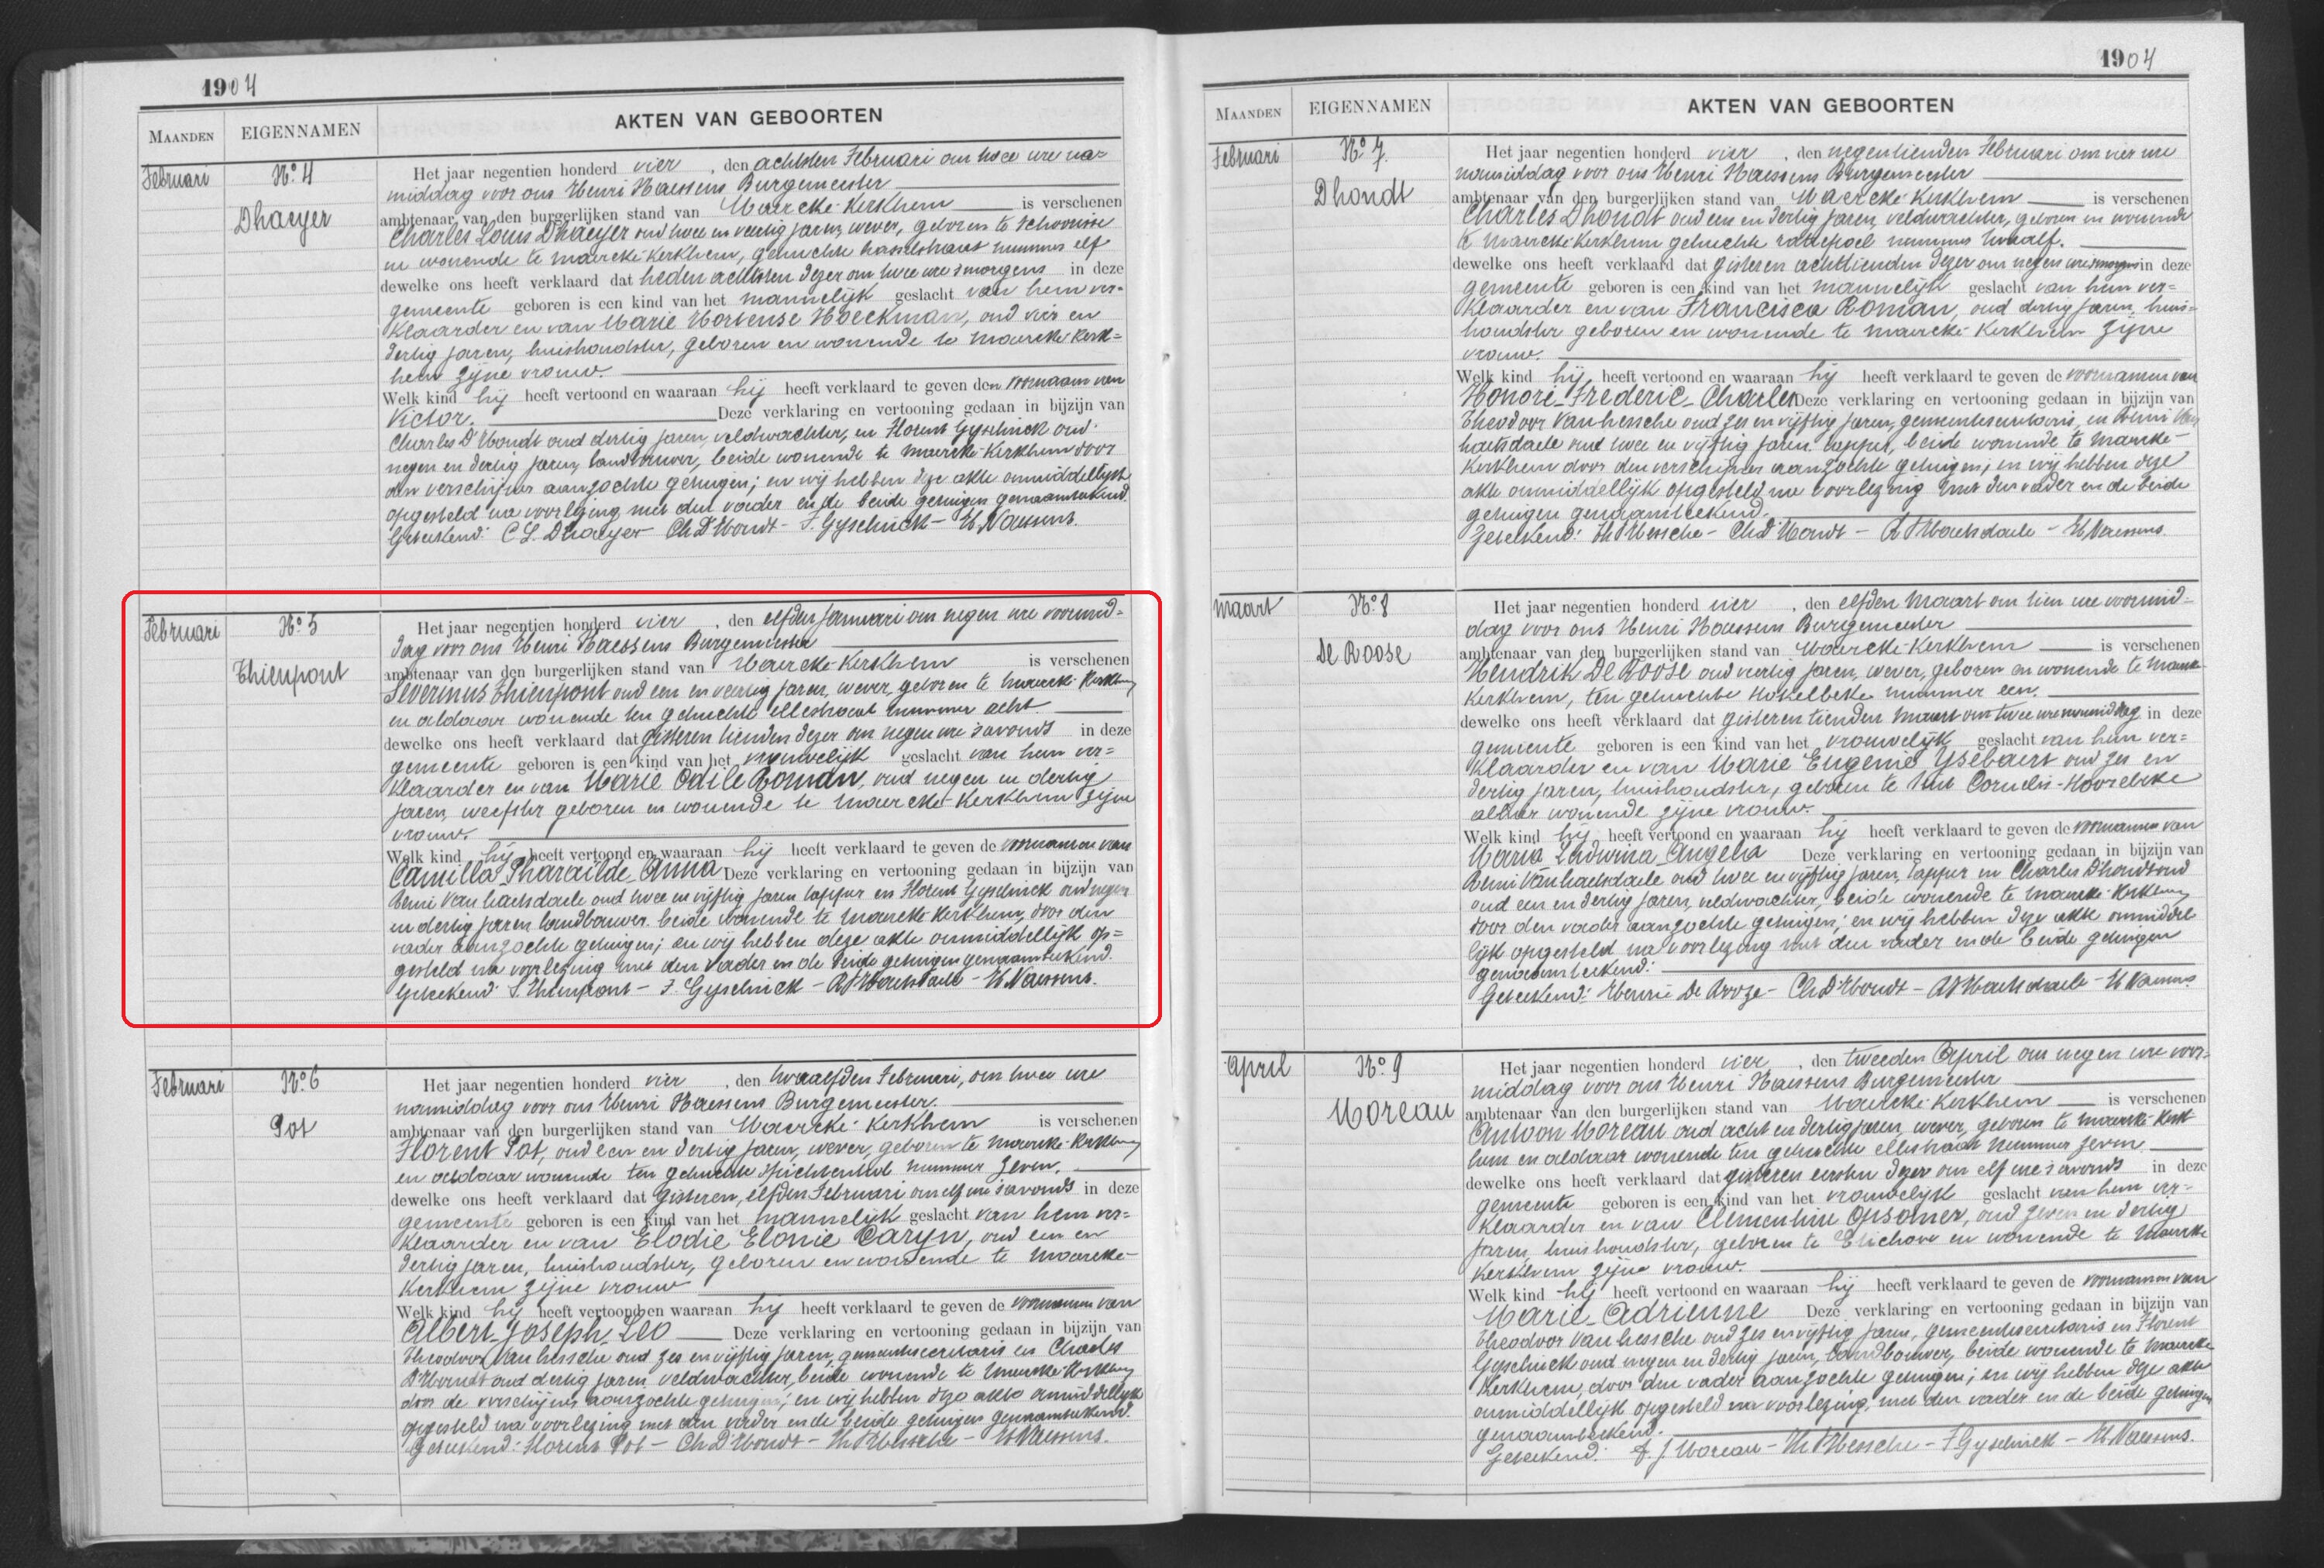 1904
MAANDEN EIGENNAMEN AKTEN VAN GEBOORTEN
Februari
No. 4
Dhaeyer
Het jaar negentien honderd vier, den achtsten Februari om twee ure na=
middag voor ons Henri Naessens Burgemeester
ambtenaar van den burgerlijken stand van Maercke-Kerkhem is verschenen
Charles Louis Dhaeyer oud twee en veertig jaren, wever, geboren te Schoorisse
en wonende te Maercke-Kerkhem, gehuchte hasselstraat nummer elf
dewelke ons heeft verklaard dat heden achtsten dezer om twee ure smorgens in deze
gemeente geboren is een kind van het mannelijk geslacht van hem ver=
klaarder en van Marie Hortense Hoeckman, oud vier en
dertig jaren, huishoudster, geboren en wonende te Maercke Kerk=
hem zijne vrouw.
Welk kind hij heeft vertoond en waaraan hij heeft verklaard te geven den voornaam van
Victor. Deze verklaring en vertooning gedaan in bijzijn van
Charles D'Hondt oud dertig jaren, veldwachter, en Florent Gyselinck oud
negen en dertig jaren, landbouwer, beide wonende te Maercke-Kerkhem door
den verschijner aanzochte getuigen; en wij hebben deze akte onmiddellijk
opgesteld na voorlezing met den vader en de beide getuigen genaamteekend.
Geteekend: C L Dhaeyer - Ch D'Hondt - F. Gyselinck - H. Naessens.
Februari
No. 5
Thienpont
Het jaar negentien honderd vier, den elfden Januari om negen ure voormid=
dag voor ons Henri Naessens Burgemeester
ambtenaar van den burgerlijken stand van Maercke-Kerkhem is verschenen
Severinus Thienpont oud een en veertig jaren, wever, geboren te Maercke-Kerkhem
en aldaar wonende ten gehuchte ellestraat nummer acht.
dewelke ons heeft verklaard dat gisteren tienden dezer om negen ure s'avonds in deze
gemeente geboren is een kind van het vrouwelijk geslacht van hem ver=
klaarder en van Marie Odile Roman, oud negen en dertig
jaren, weefster geboren en wonende te Maercke-Kerkhem zijne
vrouw.
Welk kind hij heeft vertoond en waaraan hij heeft verklaard te geven de voornamen van
Camilla-Pharaïlde-Anna Deze verklaring en vertooning gedaan in bijzijn van
Remi Vanhaetsdaele oud twee en vijftig jaren tapper en Florent Gyselinck oud negen
en dertig jaren landbouwer, beide wonende te Maercke-Kerkhem, door den
vader aanzochte getuigen; en wij hebben deze akte onmiddellijk op=
gesteld na voorlezing met den vader en de beide getuigen genaamteekend.
Geteekend: S. Thienpont - F. Gyselinck - R VHaetsdaele - H. Naessens.
Februari
No. 6
Pot
Het jaar negentien honderd vier, den twaalfden Februari, om twee ure
namiddag voor ons Henri Naessens Burgemeester.
ambtenaar van den burgerlijken stand van Maercke-Kerkhem is verschenen
Florent Pot, oud een en dertig jaren, wever, geboren te Maercke-Kerkhem
en aldaar wonende ten gehuchte nummer zeven,
dewelke ons heeft verklaard dat gisteren, elfden Februari om elf ure s'avonds in deze
gemeente geboren is een kind van het mannelijk geslacht van hem ver=
klaarder en van Elodie Elonie Caryn, oud een en
dertig jaren, huishoudster, geboren en wonende te Maercke-
Kerkhem zijne vrouw
Welk kind hij heeft vertoond en waaraan hij heeft verklaard te geven de voornamen van
Albert-Joseph-Leo Deze verklaring en vertooning gedaan in bijzijn van
Theodoor Vanhessche oud zes en vijftig jaren, gemeentesecretaris en Charles
D'Hondt oud dertig jaren, veldwachter, beide wonende te Maercke-Kerkhem
door de verschijner aanzochte getuigen; en wij hebben deze akte onmiddellijk
opgesteld na voorlezing met den vader en de beide getuigen genaamteekend.
Geteekend: Florent Pot - Ch D'Hondt - Th VHessche - H Naessens.
1904
MAANDEN EIGENNAMEN AKTEN VAN GEBOORTEN
Februari
No. 7.
Dhondt
Het jaar negentien honderd vier, den negentienden Februari om vier ure
namiddag voor ons Henri Naessens Burgemeester
ambtenaar van den burgerlijken stand van Maercke-Kerkhem is verschenen
Charles Dhondt oud een en dertig jaren, veldwachter, geboren en wonende
te Maercke Kerkhem gehuchte rattepoel nummer twaalf.
dewelke ons heeft verklaard dat gisteren achttienden dezer om negen ure smorgens in deze
gemeente geboren is een kind van het mannelijk geslacht van hem ver=
klaarder en van Francisca Roman, oud dertig jaren, huis=
houdster geboren en wonende te Maercke-Kerkhem zijne
vrouw.
Welk kind hij heeft vertoond en waaraan hij heeft verklaard te geven de voornamen van
Honoré-Frederic-Charles Deze verklaring en vertooning gedaan in bijzijn van
Theodoor Vanhessche oud zes en vijftig jaren, gemeentesecretaris, en Remi Van
haetsdaele oud twee en vijftig jaren tapper, beide wonende te Maercke-
Kerkhem door den verschijner aanzochte getuigen; en wij hebben deze
akte onmiddellijk opgesteld na voorlezing met den vader en de beide
getuigen genaamteekend.
Geteekend: Th VHessche - Ch D'Hondt - R VHaetsdaele - H. Naessens.
Maart
No. 8
De Roose
Het jaar negentien honderd vier, den elfden Maart om tien ure voormid=
dag voor ons Henri Naessens Burgemeester
ambtenaar van den burgerlijken stand van Maercke-Kerkhem is verschenen
Hendrik De Roose oud veertig jaren, wever, geboren en wonende te Maercke
Kerkhem, ten gehuchte Hokelbeke nummer een.
dewelke ons heeft verklaard dat gisteren tienden Maart om twee ure namiddag in deze
gemeente geboren is een kind van het vrouwelijk geslacht van hem ver=
klaarder en van Marie Eugenie Ysebaert oud zes en
dertig jaren, huishoudster, geboren te Sint Cornelis-Hoorebeke
alhier wonende zijne vrouw.
Welk kind hij heeft vertoond en waaraan hij heeft verklaard te geven de voornamen van
Maria-Ludwina-Angela Deze verklaring en vertooning gedaan in bijzijn van
Remi Vanhaetsdaele oud twee en vijftig jaren, tapper en Charles Dhondt oud
oud een en dertig jaren, veldwachter, beide wonende te Maercke-Kerkhem,
door den vader aanzochte getuigen; en wij hebben deze akte onmiddel
lijk opgesteld na voorlezing met den vader en de beide getuigen
genaamteekend:
Geteekend: Henri De Rooze - Ch D'Hondt - R VHaetsdaele - H Naessens.
April
No. 9
Moreau
Het jaar negentien honderd vier, den tweeden April om negen ure voor=
middag voor ons Henri Naessens Burgemeester
ambtenaar van den burgerlijken stand van Maercke-Kerkhem is verschenen
Antoon Moreau oud acht en dertig jaren, wever, geboren te Maercke-Kerk
hem en aldaar wonende ten gehuchte ellestraat nummer zeven
dewelke ons heeft verklaard dat gisteren eersten dezer om elf ure s'avonds in deze
gemeente geboren is een kind van het vrouwelijk geslacht van hem ver=
klaarder en van Clementine Opsomer, oud zeven en dertig
jaren, huishoudster, geboren te Etichove en wonende te Maercke
Kerkhem zijne vrouw.
Welk kind hij heeft vertoond en waaraan hij heeft verklaard te geven de voornamen van
Marie-Adrienne Deze verklaring en vertooning gedaan in bijzijn van
Theodoor Vanhessche oud zes en vijftig jaren, gemeentesecretaris en Florent
Gyselinck oud negen en dertig jaren, landbouwer, beide wonende te Maercke-
Kerkhem, door den vader aanzochte getuigen; en wij hebben deze akte
onmiddellijk opgesteld na voorlezing, met den vader en de beide getuigen
genaamteekend.
Geteekend: A. J. Moreau - Th VHessche - F Gyselinck - H. Naessens.